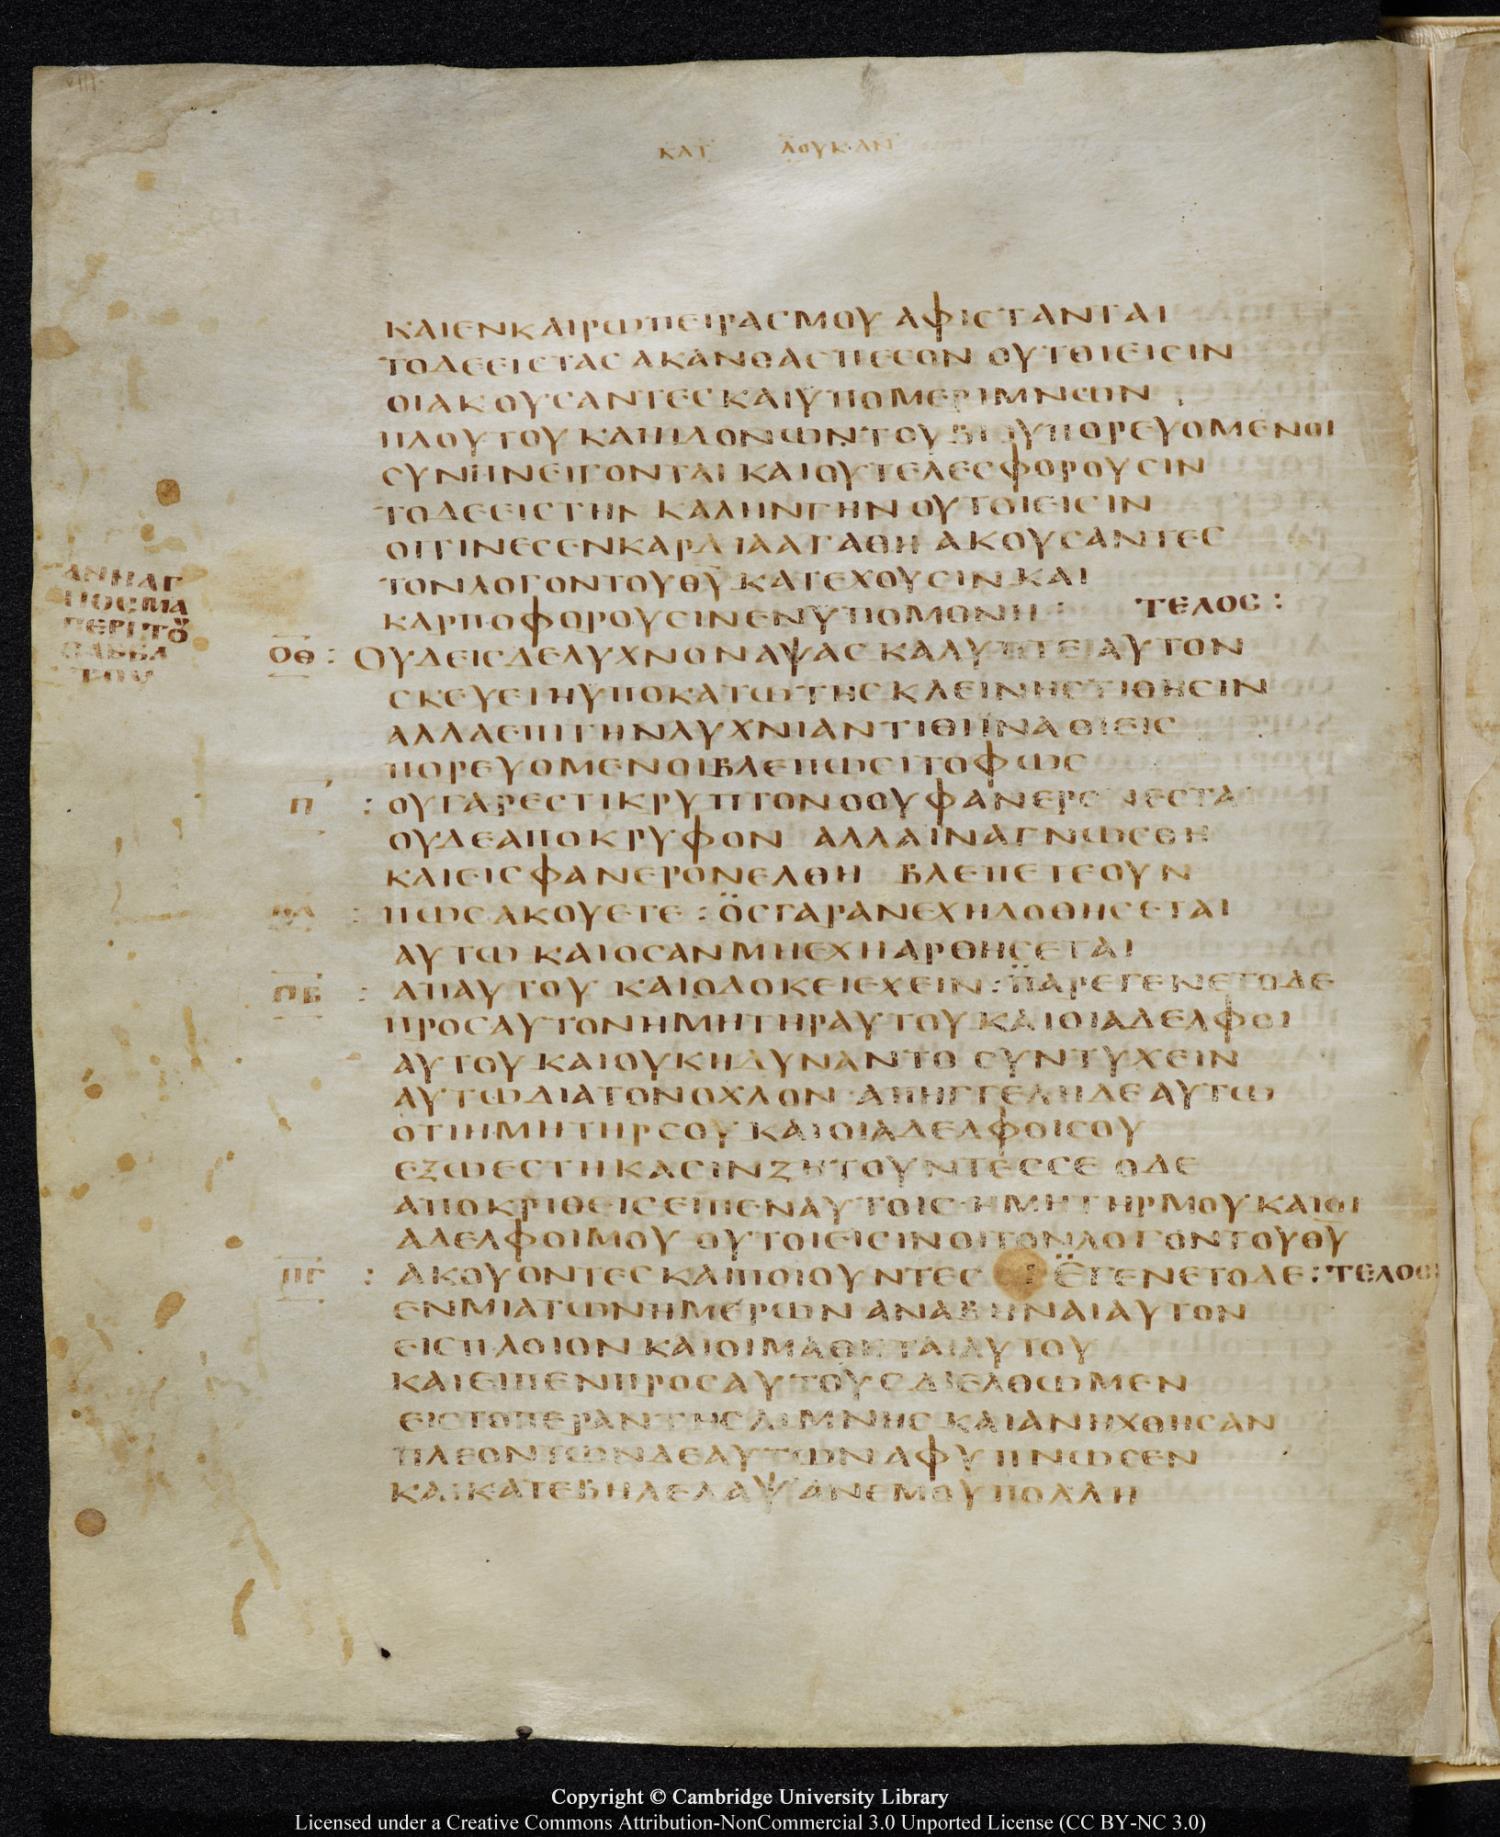 ΚΑΤ ΛΟΥΚΑΝ
ΚΑΙΕΝΚΑΙΡΩΠΕΙΡΑСΜΟΥ ΑΦΙСΤΑΝΤΑΙ
ΤΟΔΕΕΙСΤΑС ΑΚΑΝΘΑСΠΕСΟΝ ΟΥΤΟΙΕΙСΙΝ
ΟΙΑΚΟΥСΑΝΤΕСΚΑΙΫΠΟΜΕΡΙΜΝΩΝ
ΠΛΟΥΤΟΥΚΑΙΗΔΟΝΩΝΤΟΥΒΙΟΥΠΟΡΕΥΟΜΕΝΟΙ
СΥΝΠΝΕΙΓΟΝΤΑΙ ΚΑΙΟΥΤΕΛΕСΦΟΡΟΥСΙΝ
ΤΟΔΕΕΙСΤΗΝ ΚΑΛΗΝΓΗΝ ΟΥΤΟΙΕΙСΙΝ
ΟΙΤΙΝΕСΕΝΚΑΡΔΙΑΑΓΑΘΗ ΑΚΟΥСΑΝΤΕС
ΤΟΝΛΟΓΟΝΤΟΥΘΥ ΚΑΤΕΧΟΥСΙΝ ΚΑΙ
ΚΑΡΠΟΦΟΡΟΥСΙΝΕΝΥΠΟΜΟΝΗ : ΤΕΛΟС :
ΑΝΗΑΓ
ΠΟСΜΑ
ΠΕΡΙΤΟΥ
СΑΒΒΑ
ΤΟΥ
ΟΘ : ΟΥΔΕΙСΔΕΛΥΧΝΟΝΑΨΑС ΚΑΛΥΠΤΕΙΑΥΤΟΝ
СΚΕΥΕΙΗΥΠΟΚΑΤΩΤΗСΚΛΕΙΝΗСΤΙΘΗСΙΝ
ΑΛΛΑΕΠΙΤΗΝΛΥΧΝΙΑΝΤΙΘΙΪΝΑΟΙΕΙС
ΠΟΡΕΥΟΜΕΝΟΙΒΛΕΠΩСΙΤΟΦΩС
Π : ΟΥΓΑΡΕСΤΙΚΡΥΠΤΟΝΟΟΥΦΑΝΕΡΟΝΕСΤΑΙ
ΟΥΔΕΑΠΟΚΡΥΦΟΝ ΑΛΛΑΪΝΑΓΝΩСΘΗ
ΚΑΙΕΙСΦΑΝΕΡΟΝΕΛΘΗ ΒΛΕΠΕΤΕΟΥΝ
ΠΑ : ΠΩСΑΚΟΥΕΤΕ : ΟСΓΑΡΑΝΕΧΗΔΟΘΗСΕΤΑΙ
ΑΥΤΩ ΚΑΙΟСΑΝΜΗΕΧΗΑΡΘΗСΕΤΑΙ
ΠΒ : ΑΠΑΥΤΟΥ ΚΑΙΟΔΟΚΕΙΕΧΕΙΝ : ΠΑΡΕΓΕΝΕΤΟΔΕ
ΠΡΟСΑΥΤΟΝΗΜΗΤΗΡΑΥΤΟΥΚΑΙΟΙΑΔΕΛΦΟΙ
ΑΥΤΟΥ ΚΑΙΟΥΚΗΔΥΝΑΝΤΟ СΥΝΤΥΧΕΙΝ
ΑΥΤΩΔΙΑΤΟΝΟΧΛΟΝ ΑΠΗΓΓΕΛΗΔΕΑΥΤΩ
ΟΤΙΗΜΗΤΗΡСΟΥ ΚΑΙΟΙΑΔΕΛΦΟΙСΟΥ
ΕΞΩΕСΤΗΚΑСΙΝΖΗΤΟΥΝΤΕССΕ ΟΔΕ
ΑΠΟΚΡΙΘΕΙСΕΙΠΕΝΑΥΤΟΙС ΗΜΗΤΗΡΜΟΥΚΑΙΟΙ
ΑΔΕΛΦΟΙΜΟΥ ΟΥΤΟΙΕΙСΙΝΟΙΤΟΝΛΟΓΟΝΤΟΥΘΥ
ΠΓ : ΑΚΟΥΟΝΤΕСΚΑΙΠΟΙΟΥΝΤΕС : ΕΓΕΝΕΤΟΔΕ : ΤΕΛΟС
ΕΝΜΙΑΤΩΝΗΜΕΡΩΝ ΑΝΑΒΗΝΑΙΑΥΤΟΝ
ΕΙСΠΛΟΙΟΝ ΚΑΙΟΙΜΑΘΗΤΑΙΑΥΤΟΥ
ΚΑΙΕΙΠΕΝΠΡΟСΑΥΤΟΥСΔΙΕΛΘΩΜΕΝ
ΕΙСΤΟΠΕΡΑΝΤΗСΛΙΜΝΗС ΚΑΙΑΝΗΧΘΗСΑΝ
ΠΛΕΟΝΤΩΝΔΕΑΥΤΩΝΑΦΥΠΝΩСΕΝ
ΚΑΙΚΑΤΕΒΗΛΕΛΑΨΑΝΕΜΟΥΠΟΛΛΗ
Copyright © Cambridge University Library
Licensed under a Creative Commons Attribution-NonCommercial 3.0 Unported License (CC BY-NC 3.0)